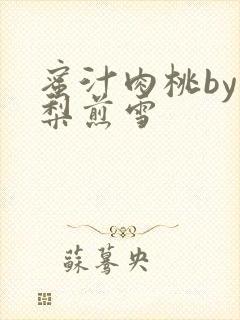 蜜汁肉桃by
梨煎雪
蘇驀央